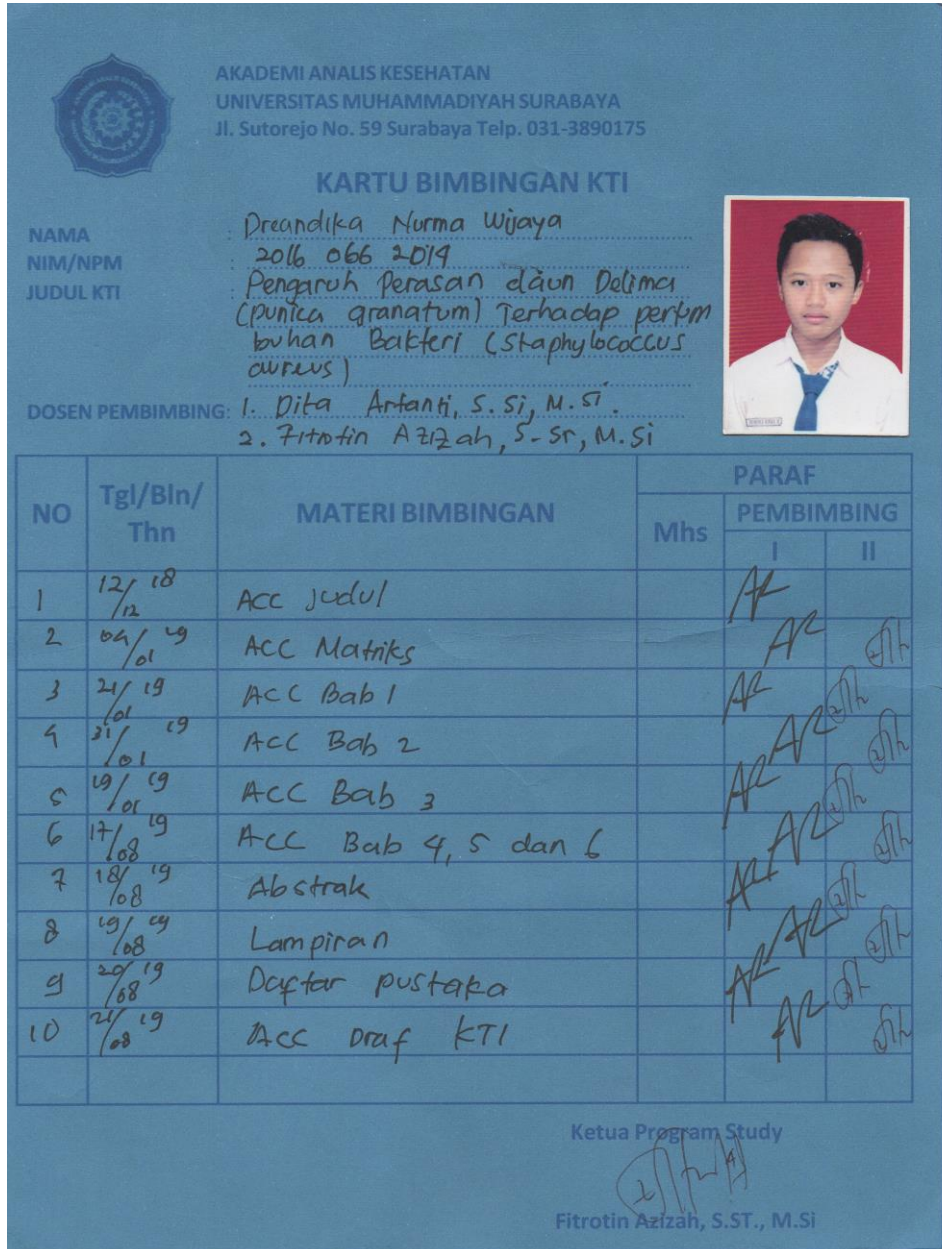 AKADEMI ANALIS KESEHATAN
UNIVERSITAS MUHAMMADIYAH SURABAYA
Jl. Sutorejo No. 59 Surabaya Telp. 031-3890175
KARTU BIMBINGAN KTI
NAMA : Dreandika Nurma Wijaya
NIM/NPM : 2016 066 2014
JUDUL KTI : Pengaruh Perasan daun Delima
(punica granatum) Terhadap pertum
buhan Bakteri (Staphylococcus
aureus)
DOSEN PEMBIMBING: 1. Dita Artanti, S.Si, M.Si.
2. Fitrotin Azizah, S-Si, M.Si
PARAF
NO Tgl/Bln/ MATERI BIMBINGAN Mhs PEMBIMBING
Thn I II
1 12/12 18 ACC Judul
2 04/01 19 ACC Matriks
3 21/01 19 ACC Bab 1
4 31/01 19 ACC Bab 2
5 19/01 19 ACC Bab 3
6 17/08 19 ACC Bab 4, 5 dan 6
7 18/08 19 Abstrak
8 19/08 19 Lampiran
9 20/08 19 Daftar pustaka
10 21/08 19 Acc Draf KTI
Ketua Program Study
Fitrotin Azizah, S.ST., M.Si